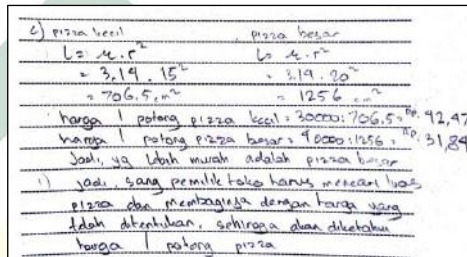 c) pizza kecil    pizza besar
L = π . r²    L = π . r²
= 3,14 . 15²    = 3,14 . 20²
= 706,5 cm²    = 1256 cm²
harga 1 potong pizza kecil = 30000 : 706,5 = Rp. 42,47
harga 1 potong pizza besar = 40000 : 1256 = Rp. 31,84
Jadi, yg lebih murah adalah pizza besar
Jadi, sang pemilik toko harus mencari luas
pizza dan membaginya dengan harga yang
telah ditentukan, sehingga akan diketahui
harga 1 potong pizza